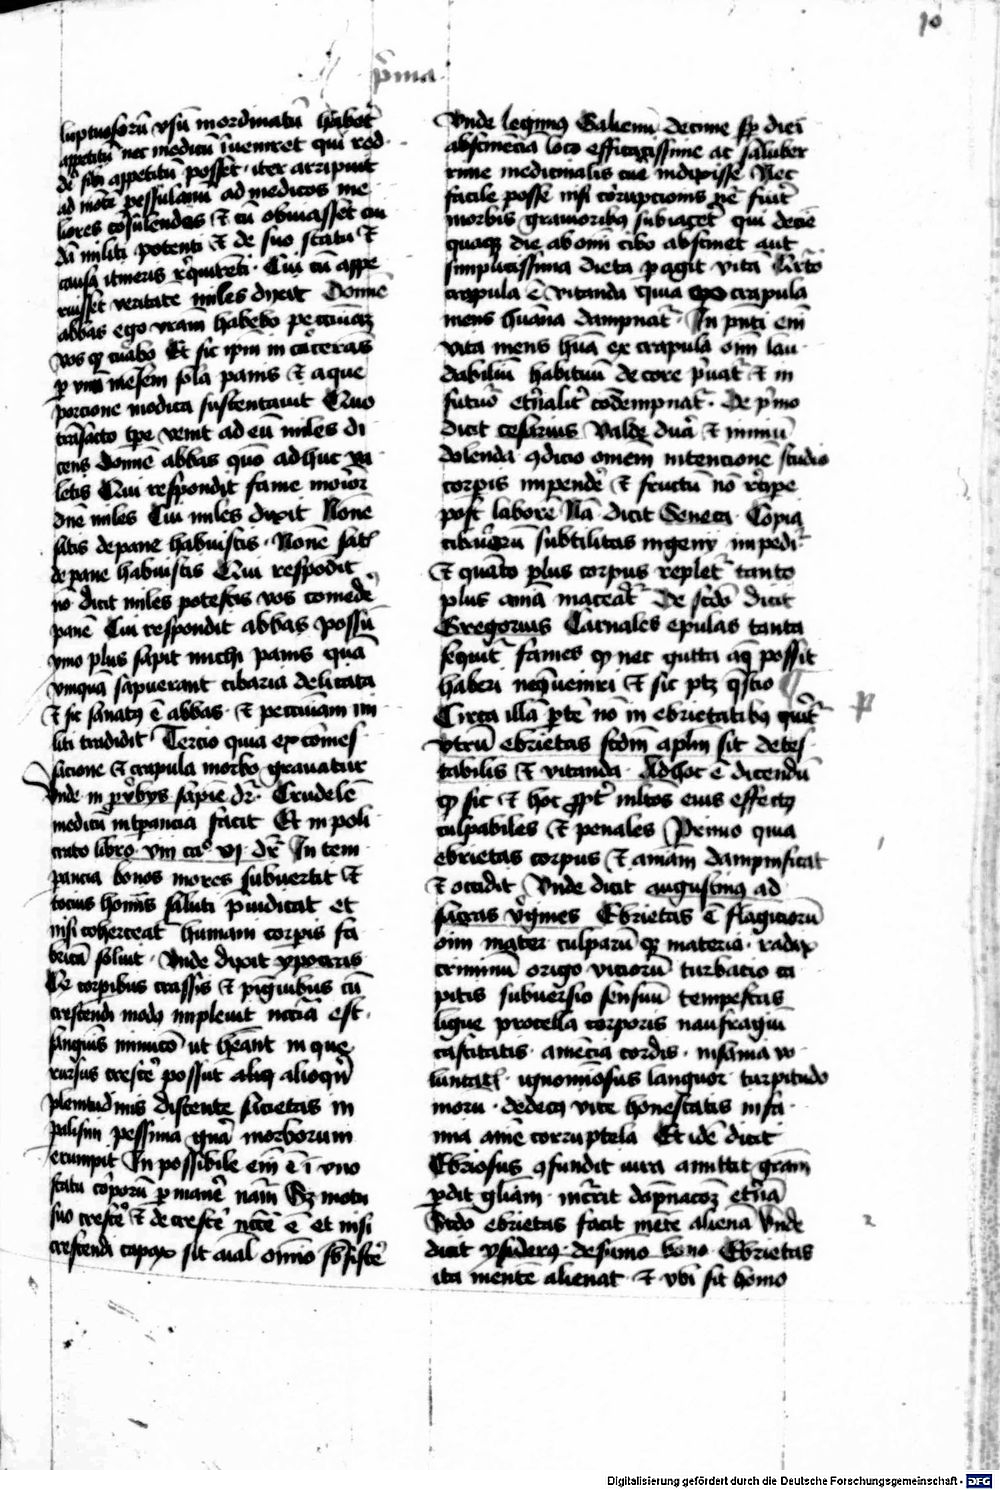 10
p̄ma
luptuosorū vsū inordinatū habēt
appetitū nec medicū īueniret qui red
de sibi appetitū posset · iter arripuit
ad motē pessulanū ad medicos me
liores cōsulendos ⁊ cū obuiasset cui
dā militi potenti ⁊ de suo statu ⁊
causa itineris req̄rēti · Cui cū appe
ruisset veritatē miles dixit Domne
abbas ego vram̄ habebo pe
vos ⁊ curabo Et sic ip̄m in carceras
p vnū mēsem sola panis ⁊ aque
porcione modica sustentauit Quo
trāsacto tp̄e venit ad eū miles di
cens Domne abbas quo adhuc va
letis Qui respondit fame morior
dn̄e miles Cui miles dixit Nōne
satis de pane habuistis · Nōne satis
de pane habuistis Qui respōdit
nō dicit miles potestis vos comedē
panē Cui respondit abbas possū
ymo plus sapit michi panis quā
vmquā sapuerant cibaria delicata
⁊ sic sanatꝰ ē abbas · ⁊ pecuniam mi
liti tradidit Tercio quia ex comes
sacione ⁊ crapula morbo grauatur
Vnde in ꝓu̇bijs sapiē dr̄ · Crudelē
medicū intpancia facit Et in poli
crato libro · viij caº vj dr̄ In tem
pancia bonos mores subuertit ⁊
tocius homīs saluti p̄iudicat et
nisi coherceat᷑ humani corpis fa
bricā soluit · Vnde dixit ypocras
Ce corpibus crassis ⁊ pīguibus cū
crescendi modū impleuit nccīa est ·
sanguīs minucō ut hēant in que
rursus crescē possūt aliq̄ alioqn̄
plenitudinis distente sacietas in
pessima morborum
erumpit In possibile em̄ ē ī vno
statu corporū pmanē nam̄ Sꝫ motu
suo crescē ⁊ decrescē ncc̄e ē et nisi
crescendi capax sit aīal oīno sb̄sistē
Vnde legimꝰ Galienū decime sp̄ diei
abstinēcia loco efficacissime ac saluber
rime medicinalis cure indixisse Nec
facile posse nisi corupcionis ne fuīt
morbis grauioribꝰ subiacet᷑ qui decīe
quaqꝫ die ab om̄i cibo abstinet aut
simplicissima dieta pagit vitā Qrto
crapula ē vitanda quia crapula
mens humana dampnat᷑ · In pn̄ti em̄
vita mens hūa ex crapula om̄i lau
dabiliū habituū decore p̄uat᷑ ⁊ in
futuō etn̄alit᷑ cōdempnat᷑ · De p̄mo
dicit cesarius Valde durā ⁊ nimiū
dolenda ꝯdicio omem intencione studio
corpis inpendē ⁊ fructū nō recipe
post laborē Nā dicit Seneca · Copia
cibariorū subtilitas ingenij impedit᷑
⁊ quāto plus corpus replet᷑ tanto
plus aīma maceat᷑ De scdō dicit
Gregorius Carnales epulas tanta
sequit᷑ fames ꝙ nec gutta aq̄ possit
haberi ⁊ sic ptꝫ q̄stio
Circa illā ptē nō in ebrietatibꝰ quit᷑
vtrū ebrietas scdm̄ aplm̄ sit detes
tabilis ⁊ vitanda · Ad hoc ē dicendū
ꝙ sic ⁊ hoc ꝓpt᷑ mltos eius effectꝰ
culpabiles ⁊ penales Primo quia
ebrietas corpus ⁊ aīmam dampnificat
⁊ occidit Vnde dicit augustinꝰ ad
sacras v̇gines Ebrietas ē flagiciorū
oīm mater culparū ⁊ materia · radix
criminū origo viciorū turbacio ca
pitis subuersio sensuū tempestas
ligue procella corporis naufragiū
castitatis · amēcia cordis · insania vo
luntatis · ignominiosus languor turpitudo
morū · dedecꝰ vite honestatis infa
mia aīme corruptela Et idē dicit
Ebriosus ꝯfundit iura amittit gr̄am
pdit gliām · incurrit dāpnacoꝫ etn̄ā
Scdo ebrietas facit mētē alienā Vnde
dicit de sūmo bono Ebrietas
ita mentē alienat ⁊ vbi sit homo
Digitalisierung gefördert durch die Deutsche Forschungsgemeinschaft - DFG